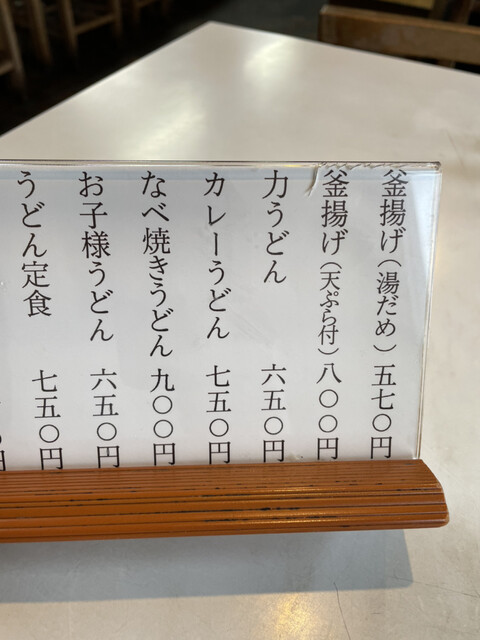 釜揚げ（湯だめ）五七〇円
釜揚げ（天ぷら付）八〇〇円
力うどん 六五〇円
カレーうどん 七五〇円
なべ焼きうどん 九〇〇円
お子様うどん 六五〇円
うどん定食 七五〇円